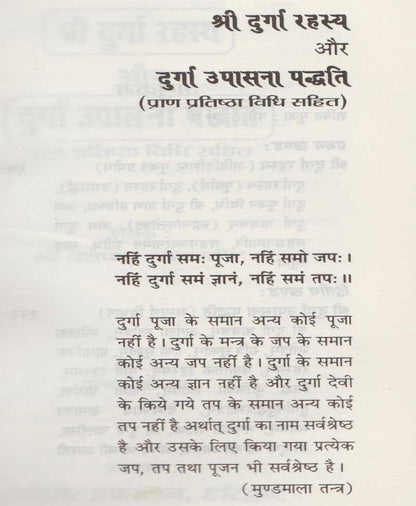 श्री दुर्गा रहस्य
और
दुर्गा उपासना पद्धति
(प्राण प्रतिष्ठा विधि सहित)
नहिं दुर्गा समः पूजा, नहिं समो जपः।
नहिं दुर्गा समं ज्ञानं, नहिं समं तपः॥
दुर्गा पूजा के समान अन्य कोई पूजा
नहीं है। दुर्गा के मन्त्र के जप के समान
कोई अन्य जप नहीं है। दुर्गा के समान
कोई अन्य ज्ञान नहीं है और दुर्गा देवी
के किये गये तप के समान अन्य कोई
तप नहीं है अर्थात् दुर्गा का नाम सर्वश्रेष्ठ
है और उसके लिए किया गया प्रत्येक
जप, तप तथा पूजन भी सर्वश्रेष्ठ है।
(मुण्डमाला तन्त्र)